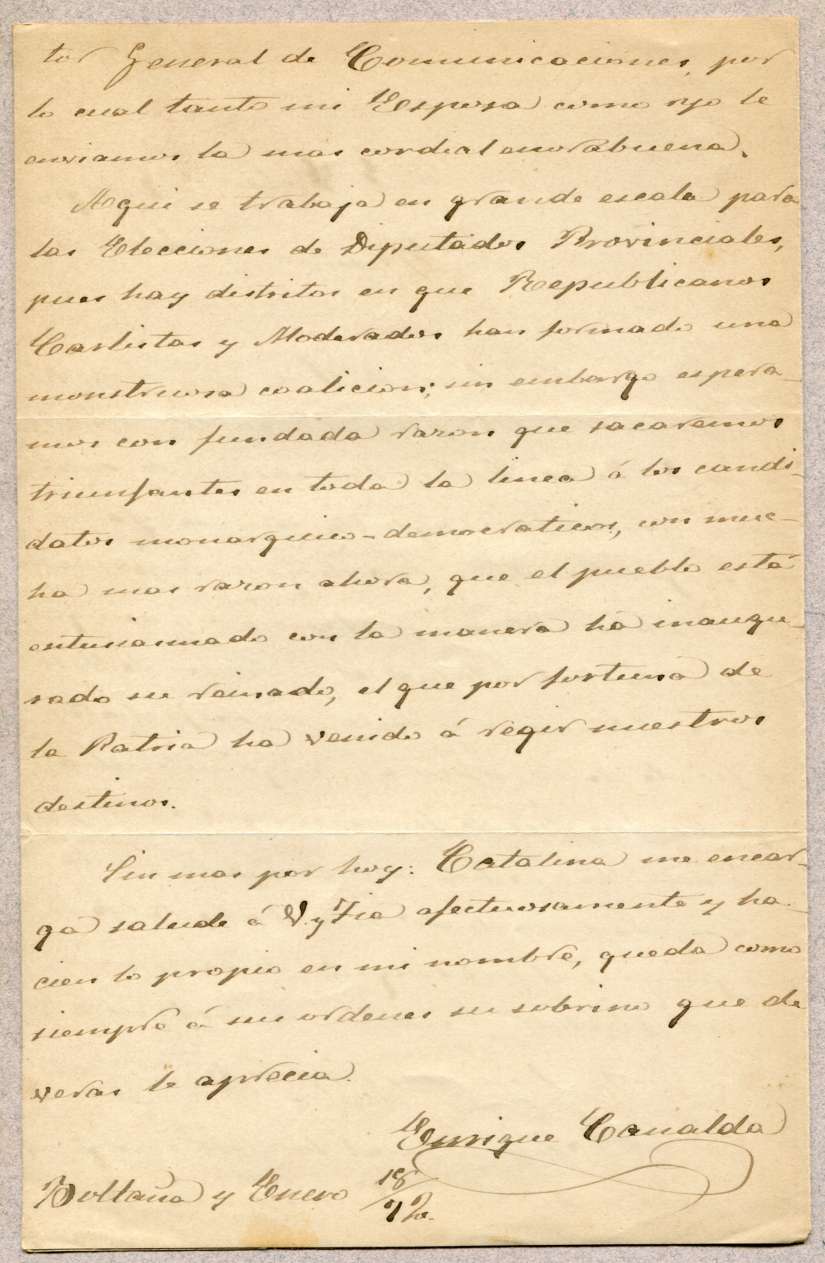 tor General de Comunicaciones, por
lo cual tanto mi Esposa como yo le
enviamos la mas cordial enorabuena.
Aqui se trabaja en grande escala para
las Elecciones de Diputados Provinciales,
pues hay distritos en que Republicanos
Carlistas y Moderados han formado una
monstruosa coalicion; sin embargo espera-
mos con fundada razon que sacaremos
triunfantes en toda la linea á los candi-
datos monarquico-democraticos, con muc-
ha mas razon ahora, que el pueblo está
entusiasmado con la manera ha inaugu-
rado su reinado, el que por fortuna de
la Patria ha venido á regir nuestros
destinos.
Sin mas por hoy: Catalina me encar-
ga salude á V. y Tia afectuosamente y ha-
cien lo propio en mi nombre, queda como
siempre á sus ordenes su sobrino que de
veras le aprecia.
Enrique Canalda
Boltaña y Enero 18/71.